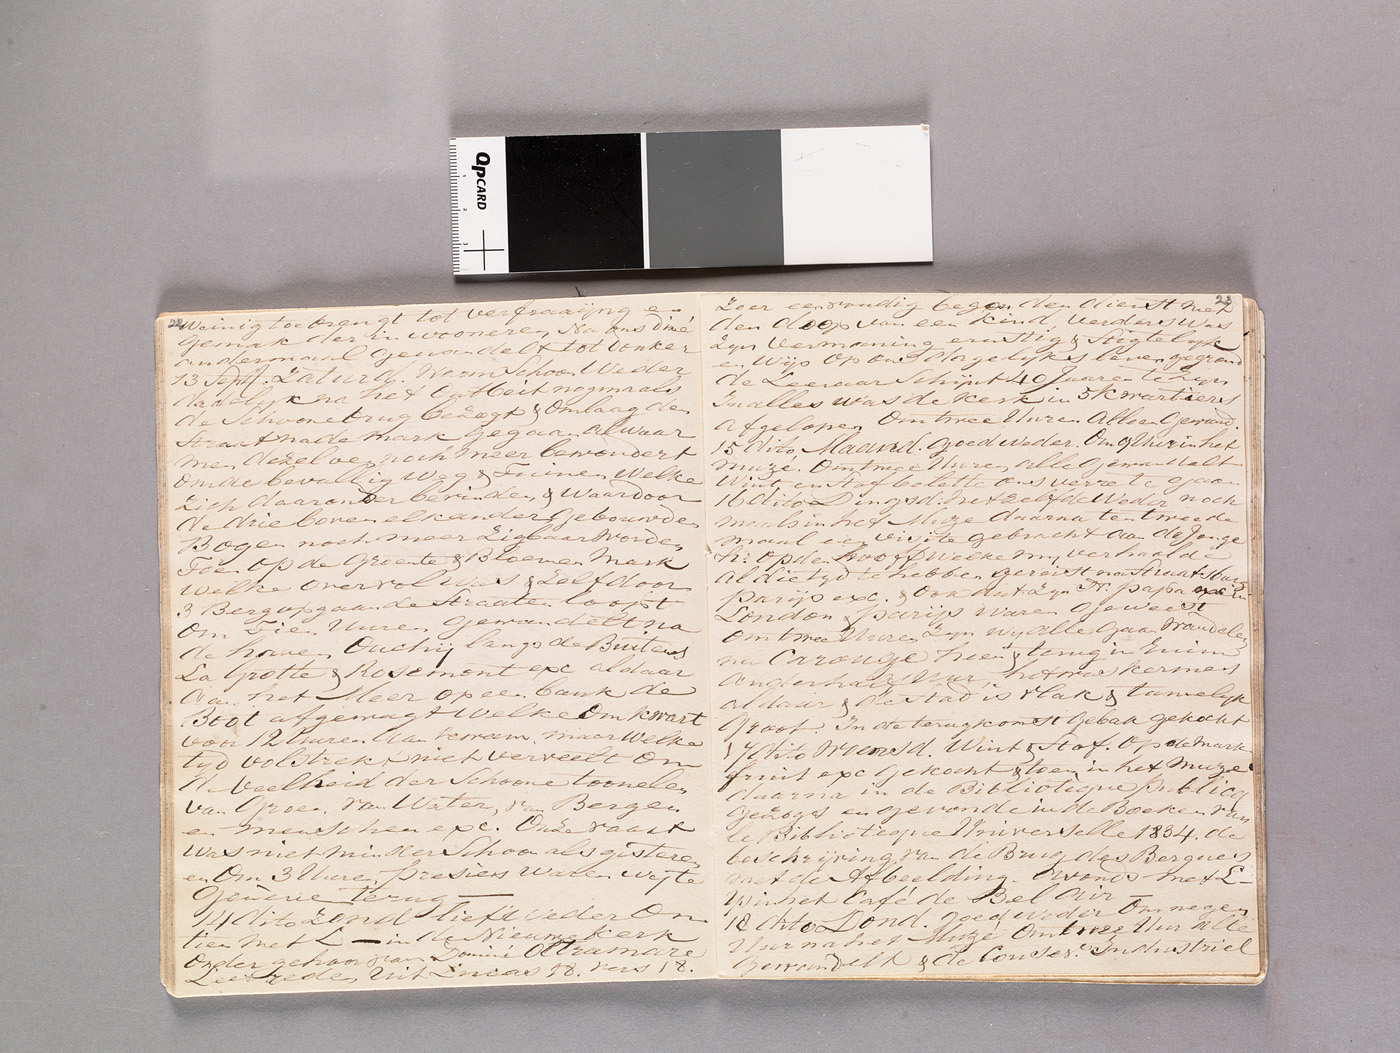 QPCARD
1
2
3
22
weinig toebrengt tot verfraaijng en
gemak der inwooneren, Na ons diné
andermaal gewandelt tot donker
13 Sept. Zaturd. Warm Schoon Weder
dadelijk na het Ontbeit nogmaals
de Schoone brug bezogt & Omlaag den
Straat na de mark gegaan alwaar
men dezelve noch meer bewondert
om de bevallig Weg & Tuinen Welke
Zich daar onder bevinden & Waardoor
de drie boven elkander gebouwde
Bogen noch meer Zigbaar Worden
Toen op de Groente & Bloemen mark
Welke overvol Was & Zelf door
3 Bergopgaande Straaten loopt
Om Tien Uuren gewandelt na
de haven Ouchij langs de Buitens
La Grotte & Rosemont exc aldaar
aan het Meer op een bank de
Boot afgewagt Welke Om kwart
voor 12 Uuren aankwam, maar Welke
tyd volstrekt niet verveelt Om
de veelheid der Schoone tooneelen
van Groen, van Water, van Bergen
en menschen exc. Onze vaart
was niet minder Schoon als gisteren
en Om 3 Uuren presies Waren Wy te
Genève terug —
14 dito Zond Lieft Weder Om
tien met L — in de Nieuwe kerk
Onder gehoor van Dominé Oltramare
Leerrede uit Lucas 18. vers 18.
23
Zeer eenvoudig began den dienst met
den doop van een kind, verders Was
Zyn vermaning ernstig & Stigtelyk
en Wijs op ons dagelyks leven gegrond
de Leeraar Schynt 40 Jaaren te Zyn
In alles was de kerk in 5 kwartiers
afgelopen Om twee Uuren Allen Gewand.
15 dito, Maand. goed Weder. Om 9 Uur in het
Muzé. Om twee Uuren alle Gewandelt
Wint en Stof belette ons verre te gaan
16 dito Dingsd. hetzelfde Weder noch
maals in het Muze daarna ten tweede
maal een visite gebracht aan de Jonge
hr. op den Hooff Welke my verhaalde
al die tyd te hebben gereist na Straatsburg
parijs exc. & Ook dat Zyn Hr. papa exc in
London & parijs Waren geweest
Om twee Uuren Zyn wy alle gaan Wandelen
na Carouge heen & terug in ruim
anderhalf Uur, het was kermes
aldaar & de Stad is vlak & tamelyk
Groot. In de terugkomst Gebak gekocht
17 dito Woensd. Wint & Stof. Op de mark
fruit exc gekocht & toen in het Muze
daarna in de Biblioteque publicq
gezogt en gevonde in de Boeken van
le Biblioteque Universelle 1834. de
beschrijving van de Brug des Bergues
met de Afbeelding. Avonds met L—
Win het Café de Bel Air
18 dito Dond. goed Weder Om negen
Uur na het Muzé Om twee Uur alle
Gewandelt & de Conser. Industriel